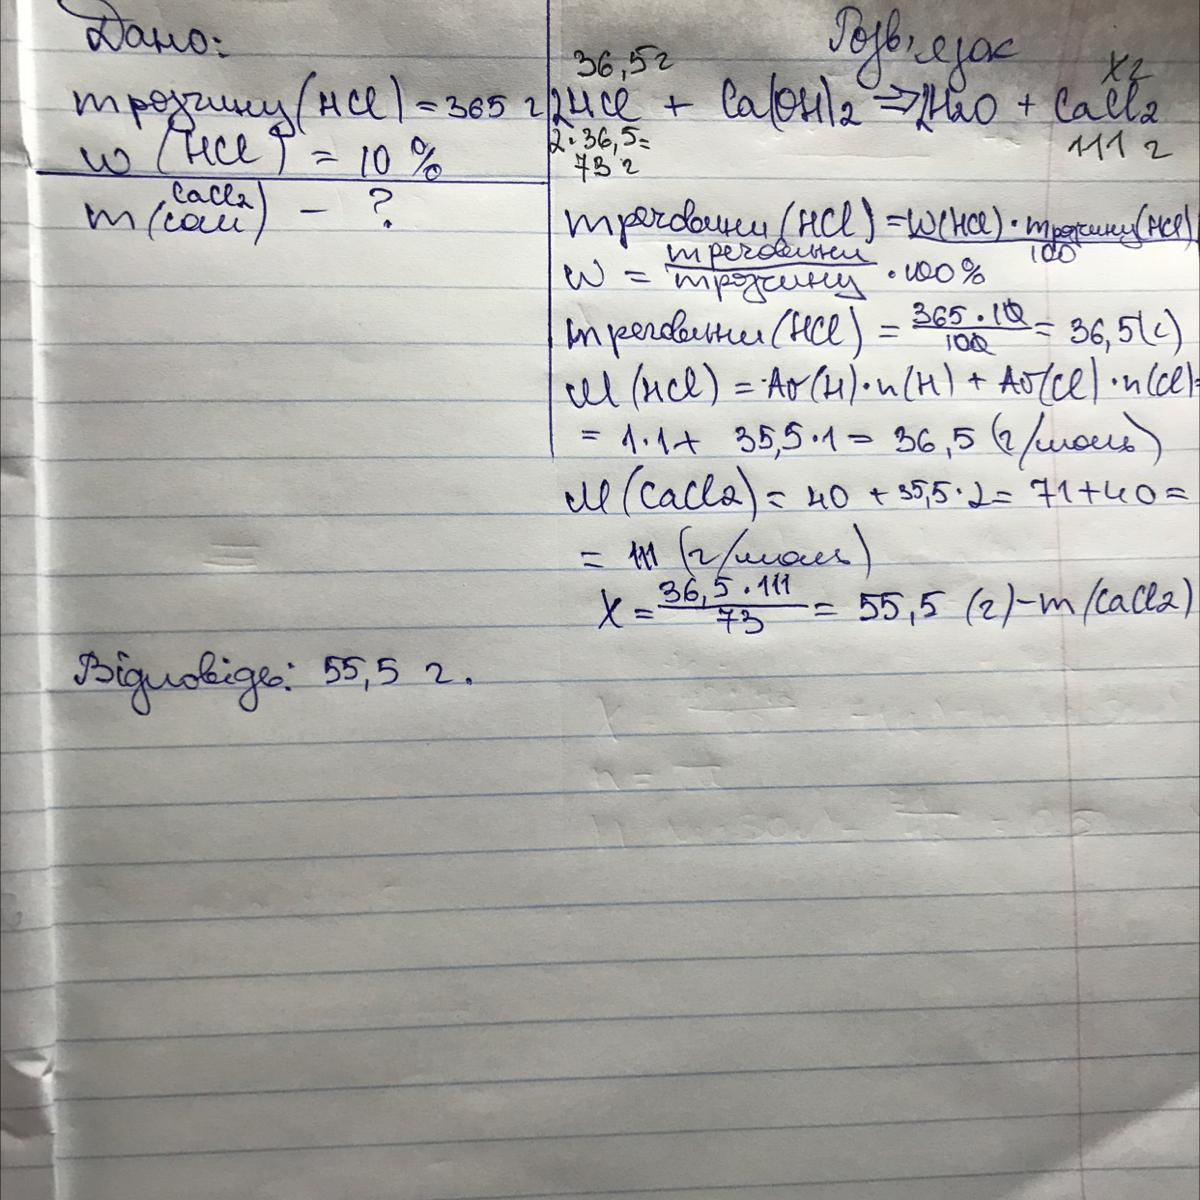 Дано:
m розчину (HCl) = 365 г
w (HCl) = 10 %
m (солі CaCl2) - ?
Розв'язок
36,5 г
x г
2HCl + Ca(OH)2 => 2H2O + CaCl2
2·36,5=
73 г
111 г
m речовини (HCl) = W(HCl)·m розчину (HCl) / 100
w = m речовини / m розчину · 100%
m речовини (HCl) = 365·10 / 100 = 36,5 (г)
M (HCl) = Ar(H)·n(H) + Ar(Cl)·n(Cl)=
= 1·1+ 35,5·1 = 36,5 (г/моль)
M (CaCl2) = 40 + 35,5·2 = 71+40 =
= 111 (г/моль)
X = 36,5·111 / 73 = 55,5 (г) - m (CaCl2)
Відповідь: 55,5 г.